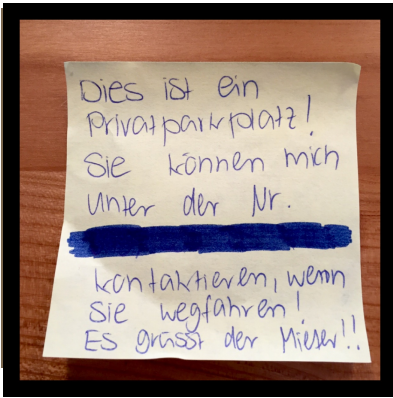 Dies ist ein
Privatparkplatz!
Sie können mich
unter der Nr.
kontaktieren, wenn
Sie wegfahren!
Es grüsst der Mieter!!